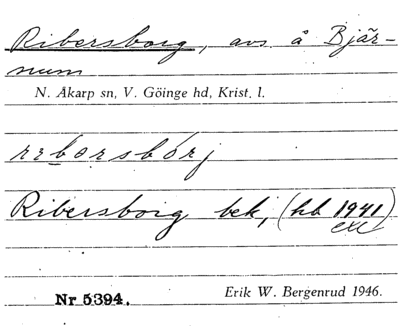 Ribersborg, avs å Bjär-
num
N. Åkarp sn, V. Göinge hd, Krist. l.
Ribersborg bek, (hb 1941)
Nr 5394. Erik W. Bergenrud 1946.